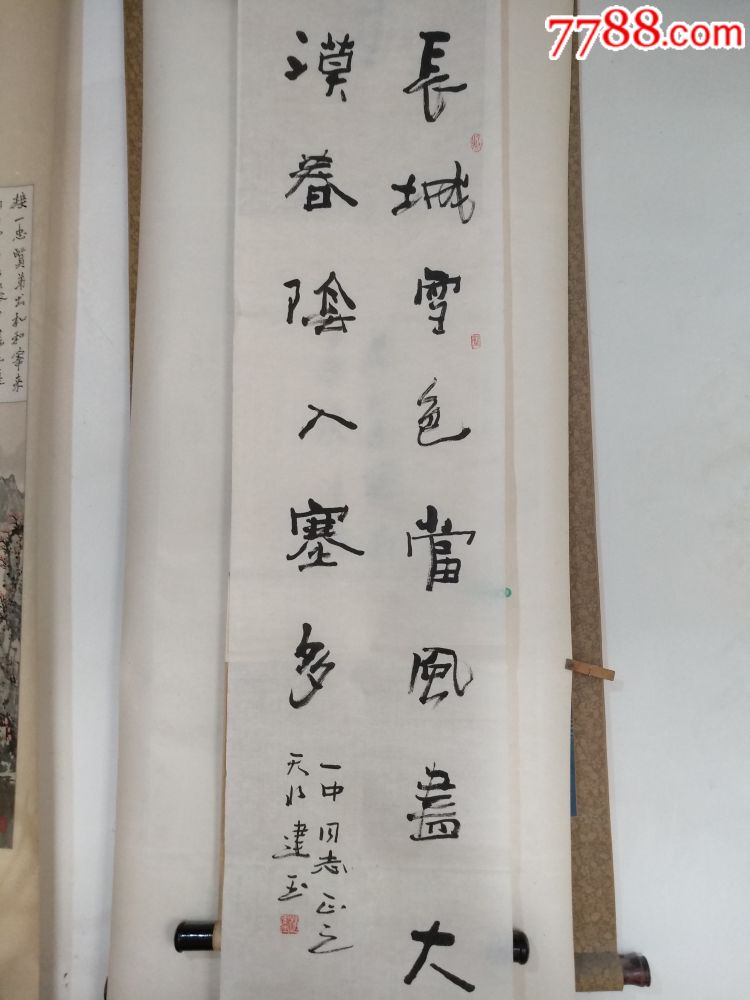 7788.com
長城雪色當風盡大
漠春陰入塞多
一中同志正之
天水建玉
接一忠賢弟出札和寧来